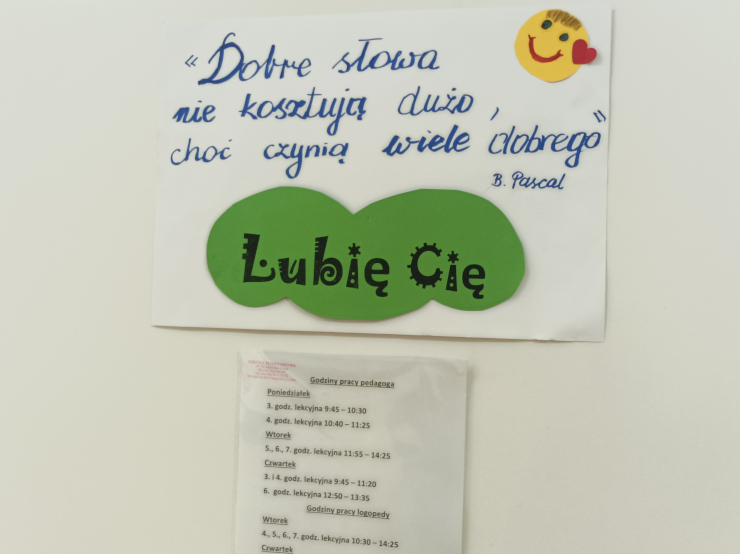 «Dobre słowa
nie kosztują dużo,
choć czynią wiele dobrego"
B. Pascal
Łubię Cię
Godziny pracy pedagoga
Poniedziałek
3. godz. lekcyjna 9:45 – 10:30
4. godz. lekcyjna 10:40 – 11:25
Wtorek
5., 6., 7. godz. lekcyjna 11:55 – 14:25
Czwartek
3. i 4. godz. lekcyjna 9:45 – 11:20
6. godz. lekcyjna 12:50 – 13:35
Godziny pracy logopedy
Wtorek
4., 5., 6., 7. godz. lekcyjna 10:30 – 14:25
Czwartek